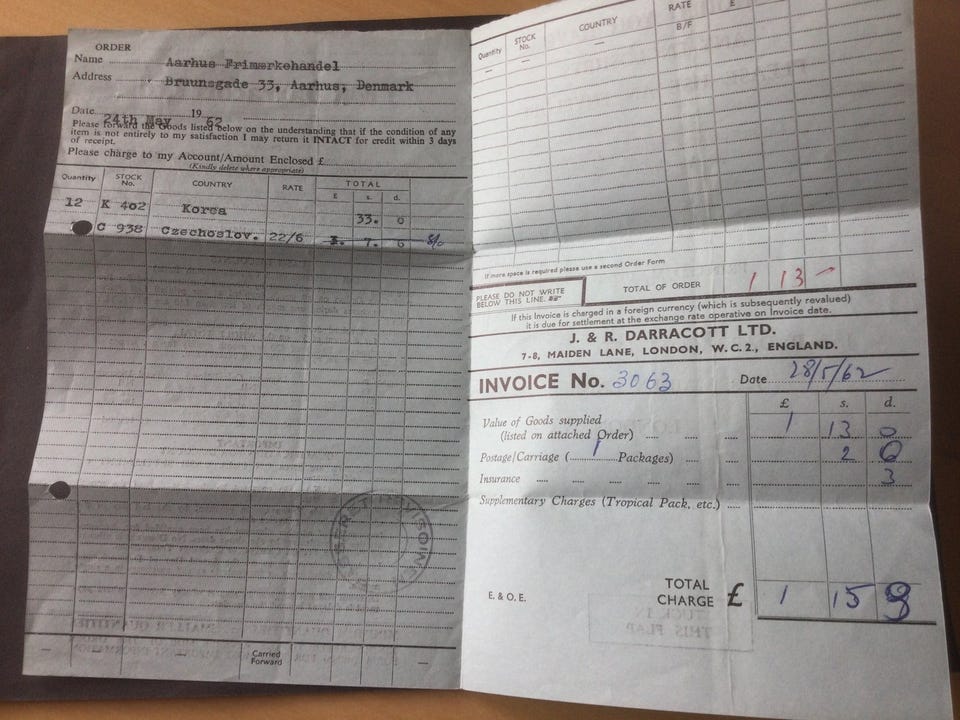 ORDER
Name Aarhus Frimærkehandel
Address Bruunsgade 33, Aarhus, Denmark
Date 24th May 1962
Please forward the Goods listed below on the understanding that if the condition of any
item is not entirely to my satisfaction I may return it INTACT for credit within 3 days
of receipt.
Please charge to my Account/Amount Enclosed £
(Kindly delete where appropriate)
Quantity STOCK No. COUNTRY RATE TOTAL
£ s. d.
12 K 402 Korea 33. 0
C 938 Czechoslov. 22/6 1. 7. 6
Carried Forward
Quantity STOCK No. COUNTRY RATE £
B/F
If more space is required please use a second Order Form
PLEASE DO NOT WRITE
BELOW THIS LINE.
TOTAL OF ORDER 1 13 -
If this Invoice is charged in a foreign currency (which is subsequently revalued)
it is due for settlement at the exchange rate operative on Invoice date.
J. & R. DARRACOTT LTD.
7-8, MAIDEN LANE, LONDON, W.C.2., ENGLAND.
INVOICE No. 3063 Date 28/5/62
£ s. d.
Value of Goods supplied
(listed on attached Order) 1 13 0
Postage/Carriage (1 Packages) 2 6
Insurance 3
Supplementary Charges (Tropical Pack, etc.)
E. & O. E.
TOTAL CHARGE £ 1 15 9